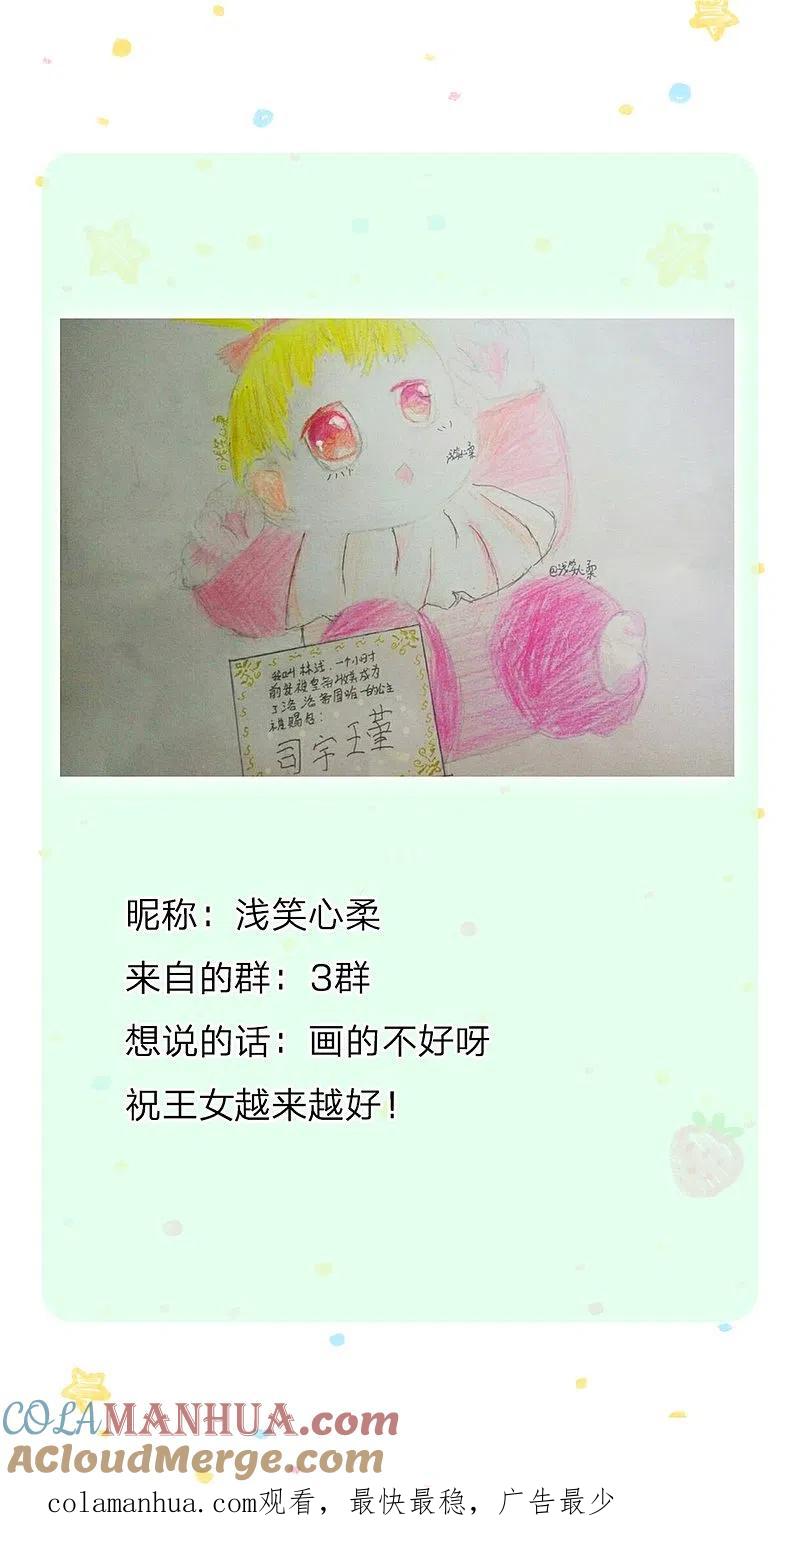 @浅笑心柔
浅笑心柔
@浅笑心柔
我叫林浅，一个小时
前我被皇帝收养成为
了洛洛帝国唯一的公主
被赐名：
司宇瑾
昵称：浅笑心柔
来自的群：3群
想说的话：画的不好呀
祝王女越来越好！
COLAMANHUA.com
ACloudMerge.com
colamanhua.com观看，最快最稳，广告最少